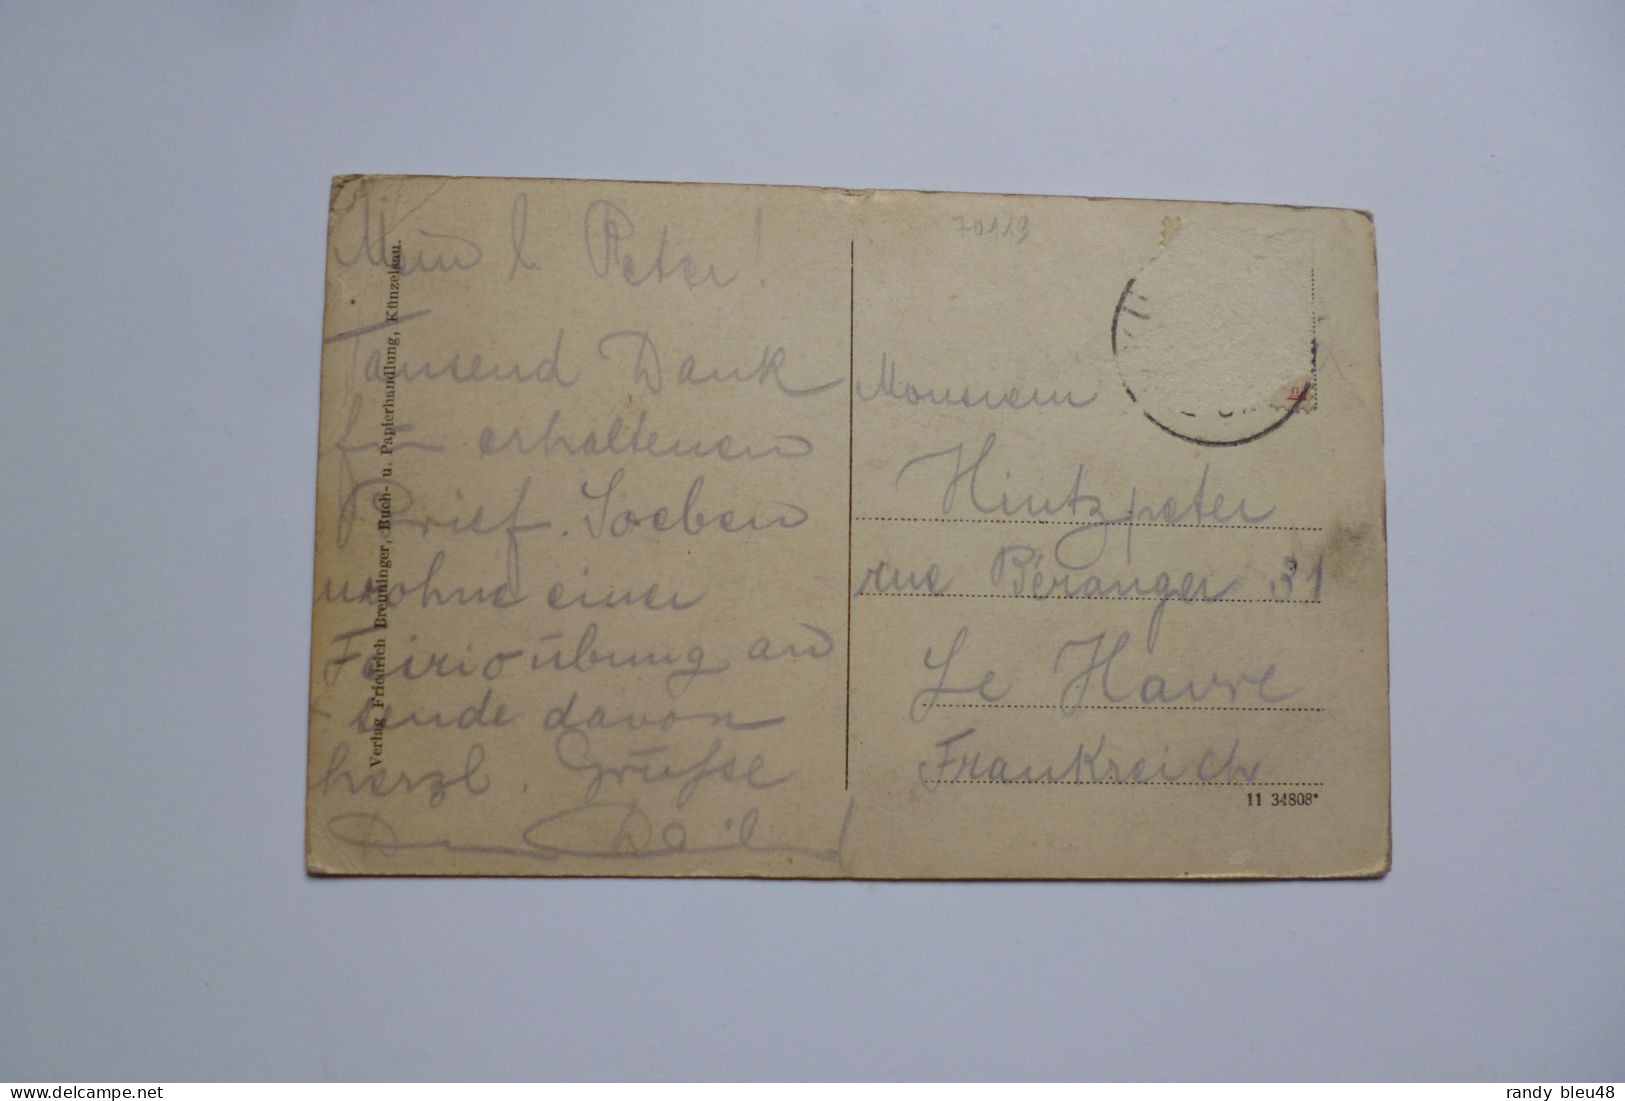 Mein l. Peter!
Tausend Dank
für erhaltenen
Brief. Soeben
wohne einer
übung an
sende davon
herzl. Grüße
Dein
Verlag Friedrich Breuninger, Buch- u. Papierhandlung, Künzelsau.
70119
Monsieur
Hintzpeter
rue Béranger 31
Le Havre
Frankreich
11 34808*
randy bleu48